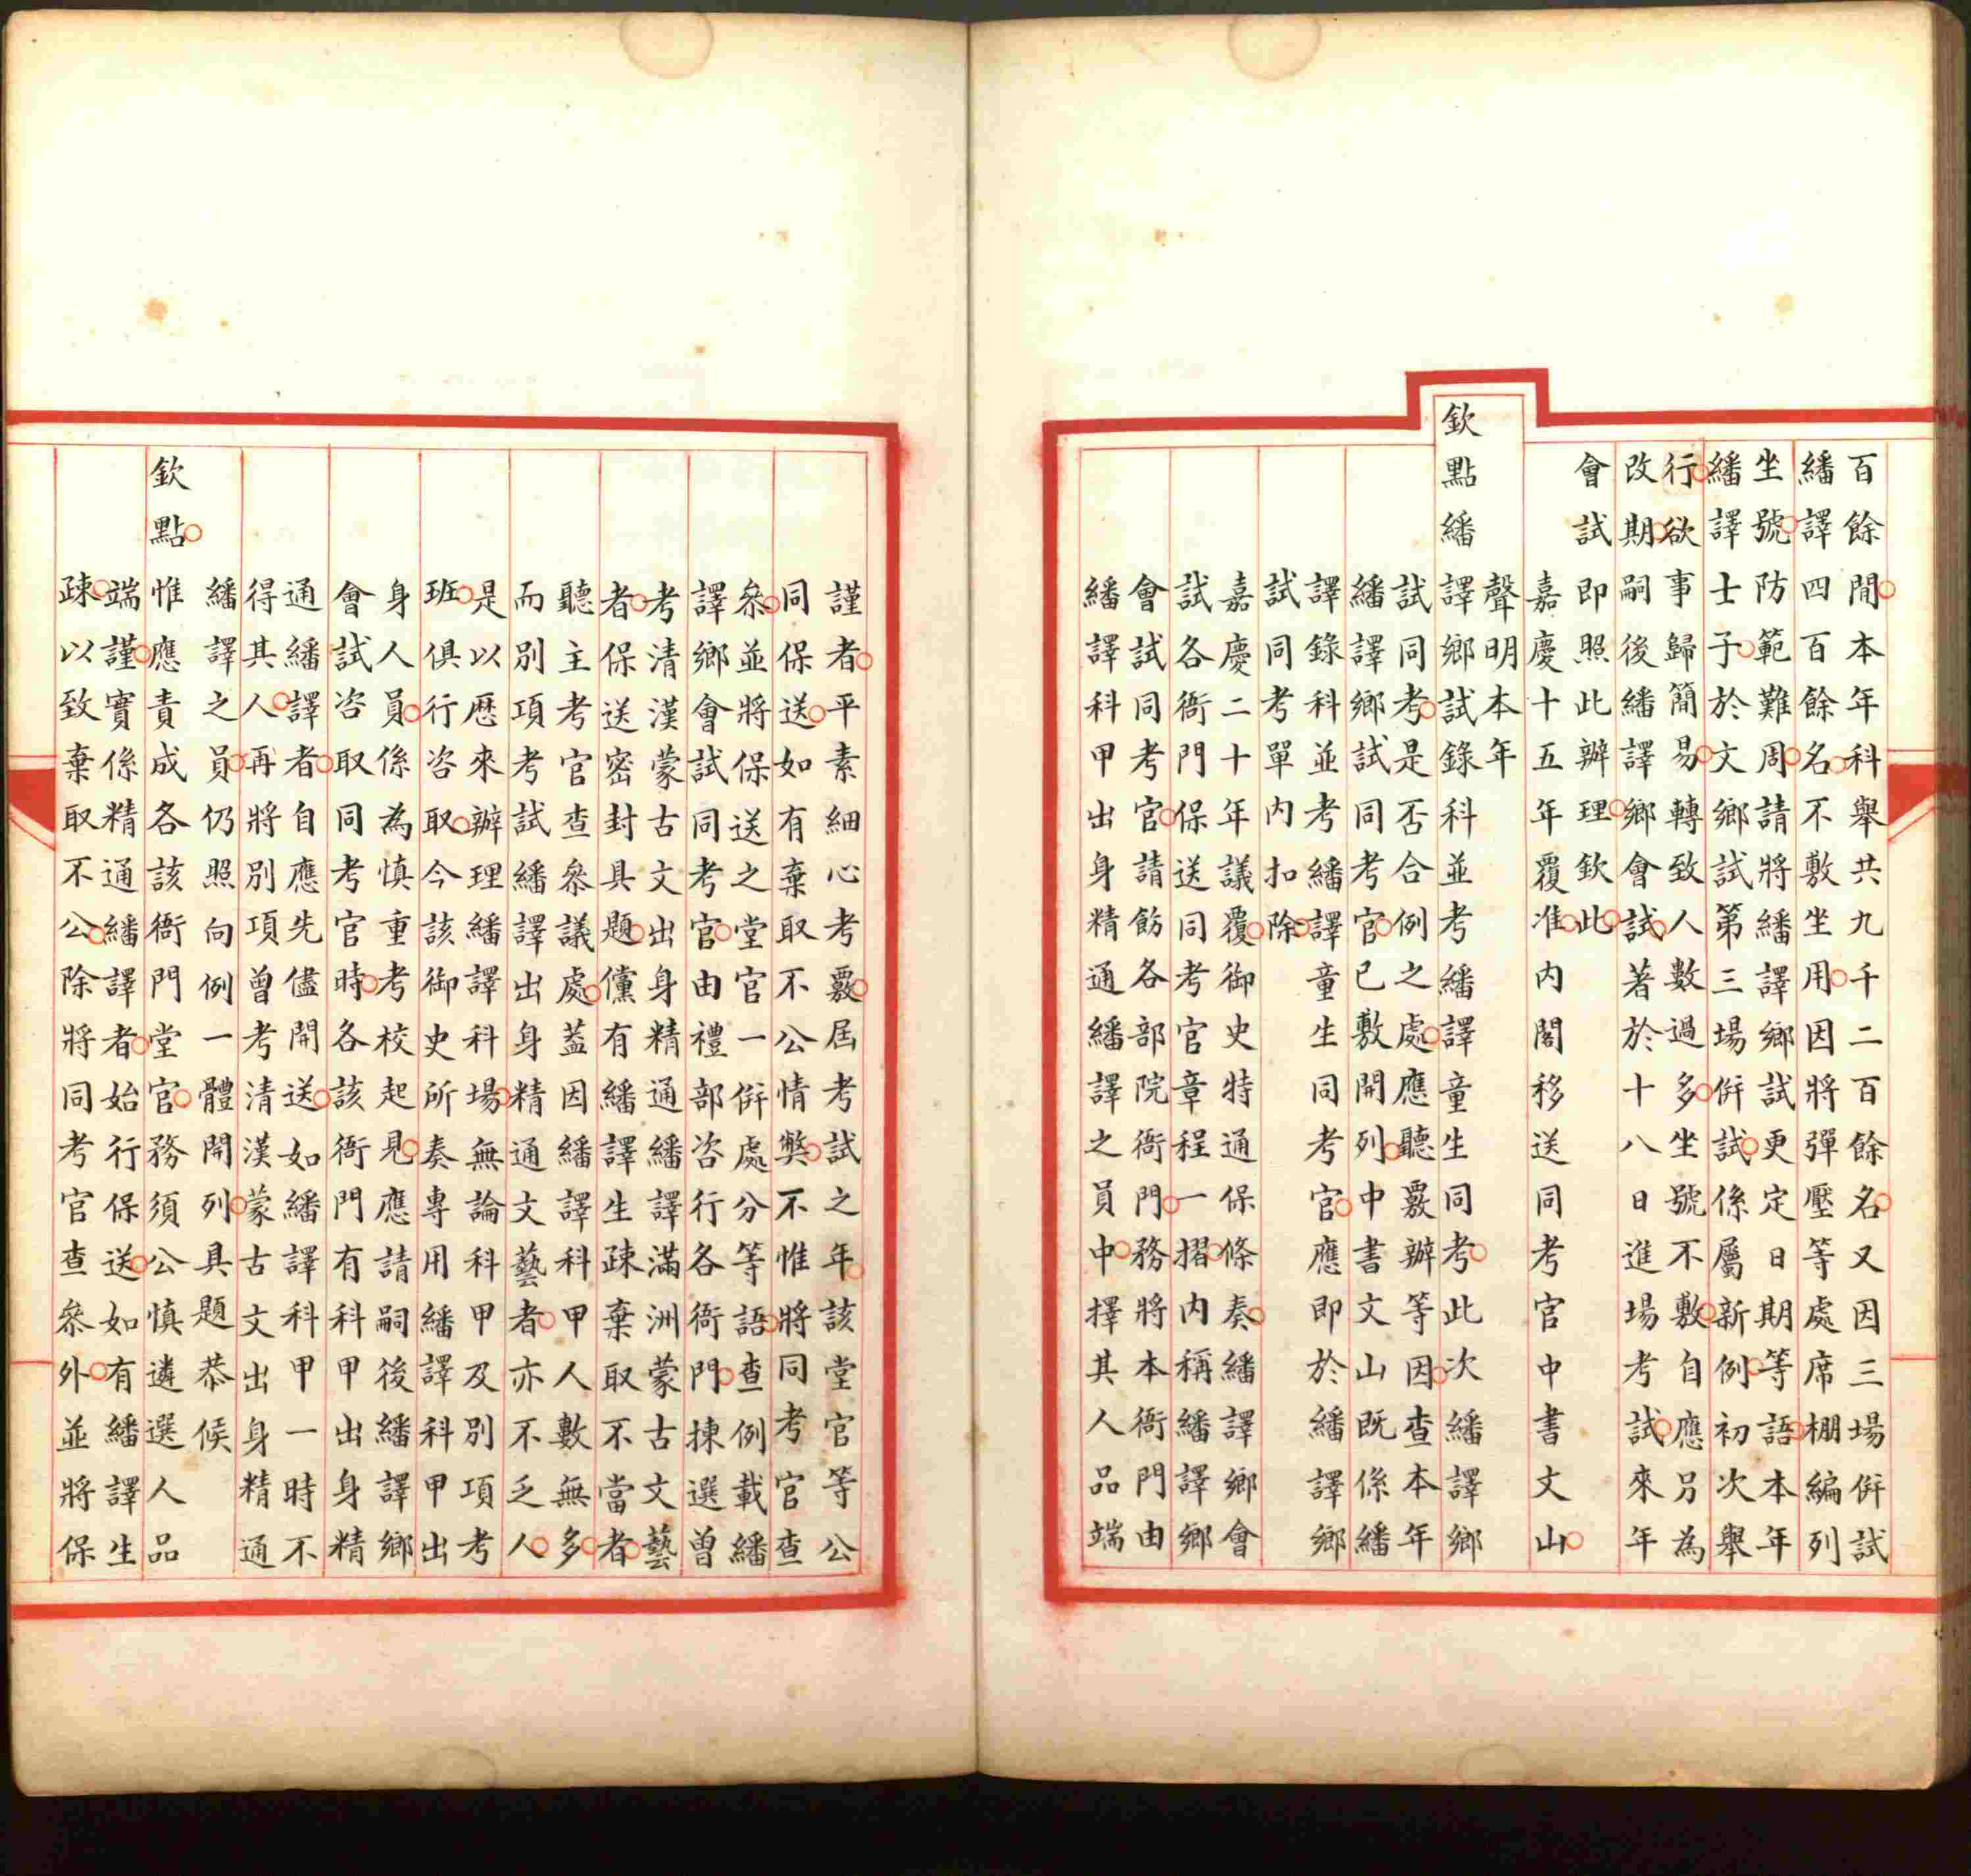 百餘間本年科舉共九千二百餘名又因三場併試
繙譯四百餘名不敷坐用因將彈壓等處席棚編列
坐號防範難周請將繙譯鄉試更定日期等語本年
繙譯士子於文鄉試第三場併試係屬新例初次舉
行欲事歸簡易轉致人數過多坐號不敷自應另為
改期嗣後繙譯鄉會試著於十八日進場考試來年
會試即照此辦理欽此
嘉慶十五年覆准內閣移送同考官中書文山
聲明本年
欽點繙譯鄉試錄科並考繙譯童生同考此次繙譯鄉
試同考是否合例之處應聽覈辦等因查本年
繙譯鄉試同考官已敷開列中書文山既係繙
譯錄科並考繙譯童生同考官應即於繙譯鄉
試同考單內扣除
嘉慶二十年議覆御史特通保條奏繙譯鄉會
試各衙門保送同考官章程一摺內稱繙譯鄉
會試同考官請飭各部院衙門務將本衙門由
繙譯科甲出身精通繙譯之員中擇其人品端
謹者平素細心考覈屆考試之年該堂官等公
同保送如有棄取不公情獘不惟將同考官查
叅並將保送之堂官一併處分等語查例載繙
譯鄉會試同考官由禮部咨行各衙門揀選曾
考清漢蒙古文出身精通繙譯滿洲蒙古文藝
者保送密封具題儻有繙譯生疎棄取不當者
聽主考官查叅議處葢因繙譯科甲人數無多
而別項考試繙譯出身精通文藝者亦不乏人
是以歷來辦理繙譯科場無論科甲及別項考
班俱行咨取今該御史所奏專用繙譯科甲出
身人員係為慎重考校起見應請嗣後繙譯鄉
會試咨取同考官時各該衙門有科甲出身精
通繙譯者自應先儘開送如繙譯科甲一時不
得其人再將別項曾考清漢蒙古文出身精通
繙譯之員仍照向例一體開列具題恭候
欽點惟應責成各該衙門堂官務須公慎遴選人品
端謹實係精通繙譯者始行保送如有繙譯生
疎以致棄取不公除將同考官查叅外並將保